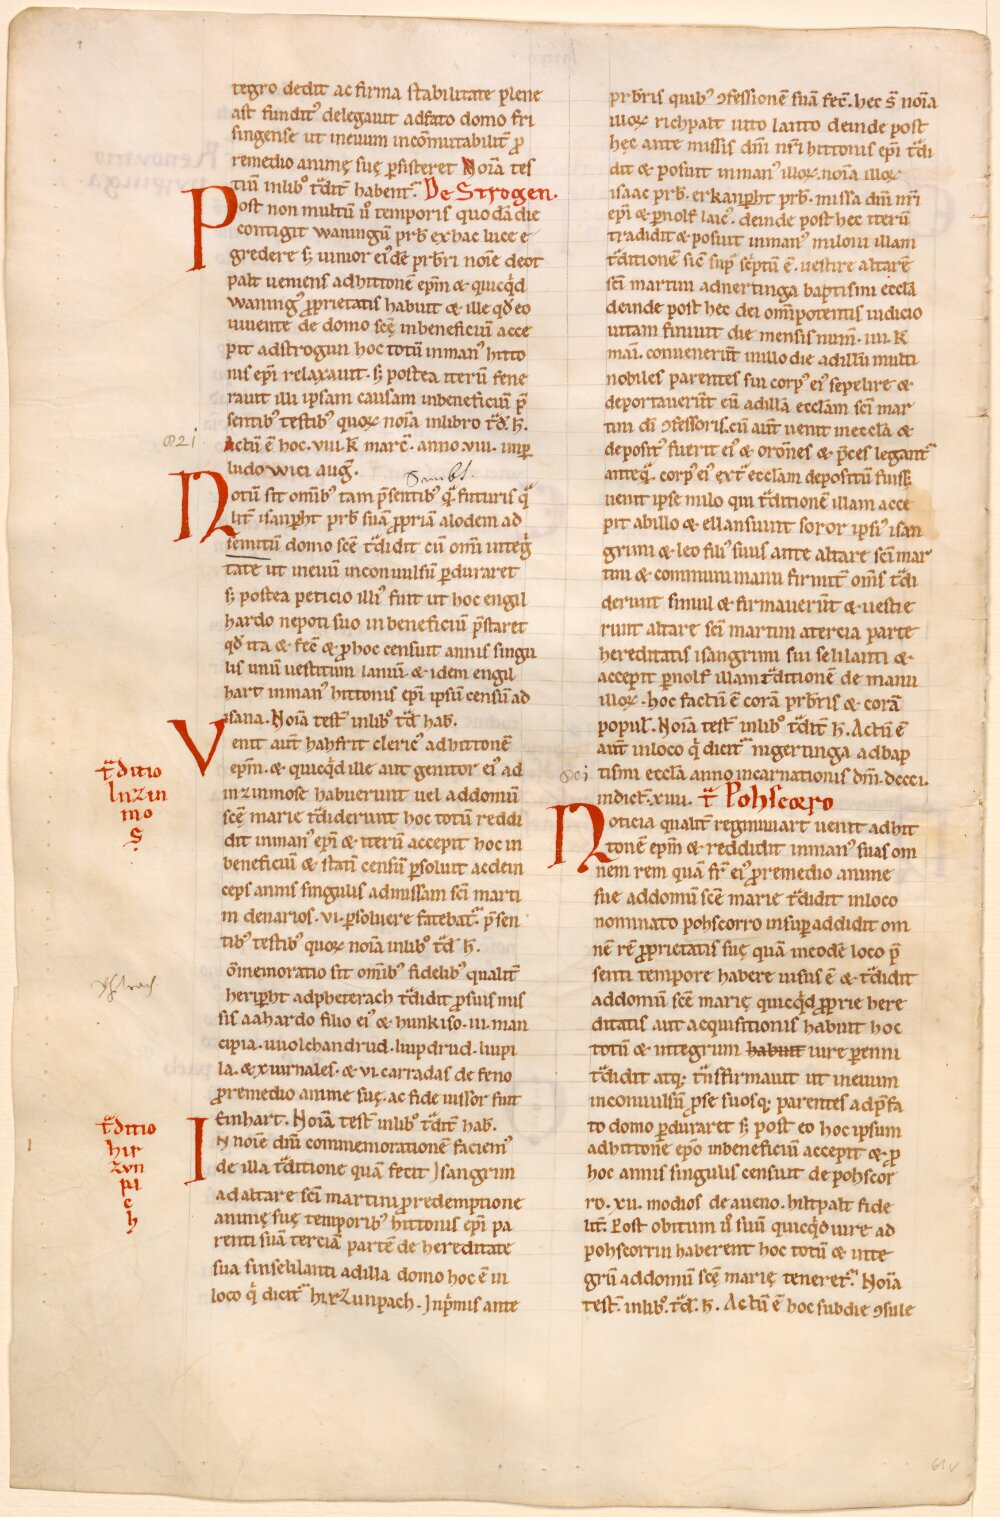 tegro dedit ac firma stabilitate plene
ast fundit᷒ delegauit adfato domo fri
singense ut ineuum incōmutabilit̄ ꝓ
remedio animę suę ꝑsisteret Noīa tes
tiū inlib᷒ t̄dit̄ habent̄. De Strogen.
Post non multū ū temporis quodā die
contigit waningū prb̄ exhac luce e
gredere sꝫ iunior ei᷒dē prb̄ri noīe deot
palt ueniens adhittonē ep̄m & quicq̇d
waning᷒ ꝓprietatis habuit & ille qd̄ eo
uiuente de domo scę̄ inbeneficiū acce
pit adstrogun hoc totū inman᷒ hitto
nis ep̄i relaxauit. sꝫ postea iterū fene
rauit illi ipsam causam inbeneficiū p̄
sentib᷒ testib᷒ quoꝝ noīa inlibro t̄d̄. h̄.
821.
Actū ē hoc. viii. k̄ marc̄. anno viii. imp̄
ludowici auḡ.
Notū sit omīb᷒ tam p̄sentib᷒ q̄ futuris q̄
lit̄ isanꝑht prb̄ suā ꝓpriā alodem ad
semitiū domo scē t̄didit cū omī inteḡ
tate ut ineuū inconuulsū ꝑduraret
sꝫ postea peticio illi᷒ fuit ut hoc engil
hardo nepoti suo inbeneficiū p̄staret
qd̄ ita & fec̄ & ꝓhoc censuit annis singu
lis unū uestitum laniū & idem engil
hart inman᷒ hittonis ep̄i ipsū censū ad
isana. Noīa test̄ inlib᷒ t̄d̄ hab̄.
Venit aut̄ hahfrit cleric᷒ adhittonē
ep̄m. & quicq̇d ille aut genitor ei᷒ ad
inzinmose habuerunt uel addomū
scē marie t̄diderunt hoc totū reddi
dit inman᷒ ep̄i & iterū accepit hoc in
beneficiū & statī censū ꝑsoluit acdein
ceps annis singulis admissam scī marti
ni denarios. vi. ꝑsoluere fatebat̄. p̄sen
tib᷒ testib᷒ quoꝝ noīa inlib᷒ t̄d̄ h̄.
t̄ditio
Inzin
mo
s
ōmemoratio sit omīb᷒ fidelib᷒ qualit̄
heriꝑht adpheterach t̄didit ꝓsuis mis
sis aahardo filio ei᷒ & hunkiso. iii. man
cipia. uuolchandrud. liupdrud. liupi
la. & x iurnales. & vi. carradas de feno
ꝓremedio anime suę. ac fide iussor fuit
Einhart. Noīa test̄ inlib᷒ t̄dit̄ hab̄.
In noīe dn̄i commemorationē faciem᷒
de illa t̄ditione quā fecit Isangrim
adaltare scī martini ꝓredemptione
animę suę temporib᷒ hittonis ep̄i pa
renti suā terciā partē de hereditate
sua sinselilanti adilla domo hoc ē in
loco q̄ dicit̄ hirzunpach. Inp̄mis ante
t̄ditio
hir
zvn
pi
c
h
prb̄ris quib᷒ ꝯfessionē suā fec̄. hec s̄ noīa
illoꝝ richpalt uuto lanto deinde post
hęc ante missis dn̄i nr̄i hittonis ep̄i t̄di
dit & posuit inman᷒ illoꝝ. noīa illoꝝ
isaac prb̄. erkanꝑht prb̄. missa dn̄i nr̄i
ep̄i & ꝑnolf laic᷒. deinde post hec iterū
tradidit & posuit inman᷒ miloni illam
t̄ditionē sic̄ sup̄ sc̄ptū ē. uestire altarē
scī martini adnertinga baptismi eccl̄a
deinde post hec dei omīpotentis iudicio
uitam finiuit die mensis num̄. iiii. k̄
mai. conuenerūt inillo die adillū multi
nobiles parentes sui corp᷒ ei᷒ sepelire &
deportauerūt eū adillā eccl̄am scī mar
tini dī ꝯfessoris. cū aut̄ uenit inecclā &
deposit᷒ fuerit ei᷒ & oronēs & p̄ces legant̄
anteq̄. corp᷒ ei᷒ ext̄ eccl̄am depositū fuiss̄
uenit ipse milo qui t̄ditionē illam acce
pit abillo & ellansuint soror ipsi᷒ isan
grimi & leo fili᷒ suus ante altare scī mar
tini & communi manu firmit̄ oms̄ t̄di
derunt simul & firmauerūt & uestie
runt altare scī martini atercia parte
hereditatis isangrimi sui selilanti &
accepit ꝑnolf illam t̄ditionē de manu
illoꝝ. hoc factū ē corā prb̄ris & corā
popul̄. Noīa test̄ inlib᷒ t̄dit̄ h̄. Actū ē
aut̄ inloco q̄ dicit̄ nigertinga adbap
tismi eccl̄a anno incarnationis dn̄i. dccci.
801
indict̄. xiiii. t̄ Pohscorro
Noticia qualit̄ reginuuart uenit adhit
tonē ep̄m & reddidit inman᷒ suas om
nem rem quā fr̄ ei᷒ ꝓremedio anime
sue addomū scē marie t̄didit inloco
nominato pohscorro insuꝑ addidit om
nē rē ꝓprietatis suę quā ineodē loco p̄
senti tempore habere uisus ē & t̄didit
addomū scē marię quicq̇d ꝓprie here
ditatis aut acquisitionis habuit hoc
totū & integrum habuit iure ꝑenni
t̄didit atqꝫ t̄nsfirmauit ut ineuum
inconuulsū ꝓse suosqꝫ parentes adp̄fa
to domo ꝑduraret sꝫ post eo hoc ipsum
adhittonē ep̄o inbeneficiū accepit & ꝓ
hoc annis singulis censuit de pohscor
ro. xii. modios de aueno. hiltpalt fide
iit̄. Post obitum ū suū quicq̇d iure ad
pohscorrin haberent hoc totū & inte
grū addomū scę̄ marię teneret̄. Noīa
test̄. inlib᷒. t̄d̄. h̄. Actū ē hoc subdie ꝯsule
61v